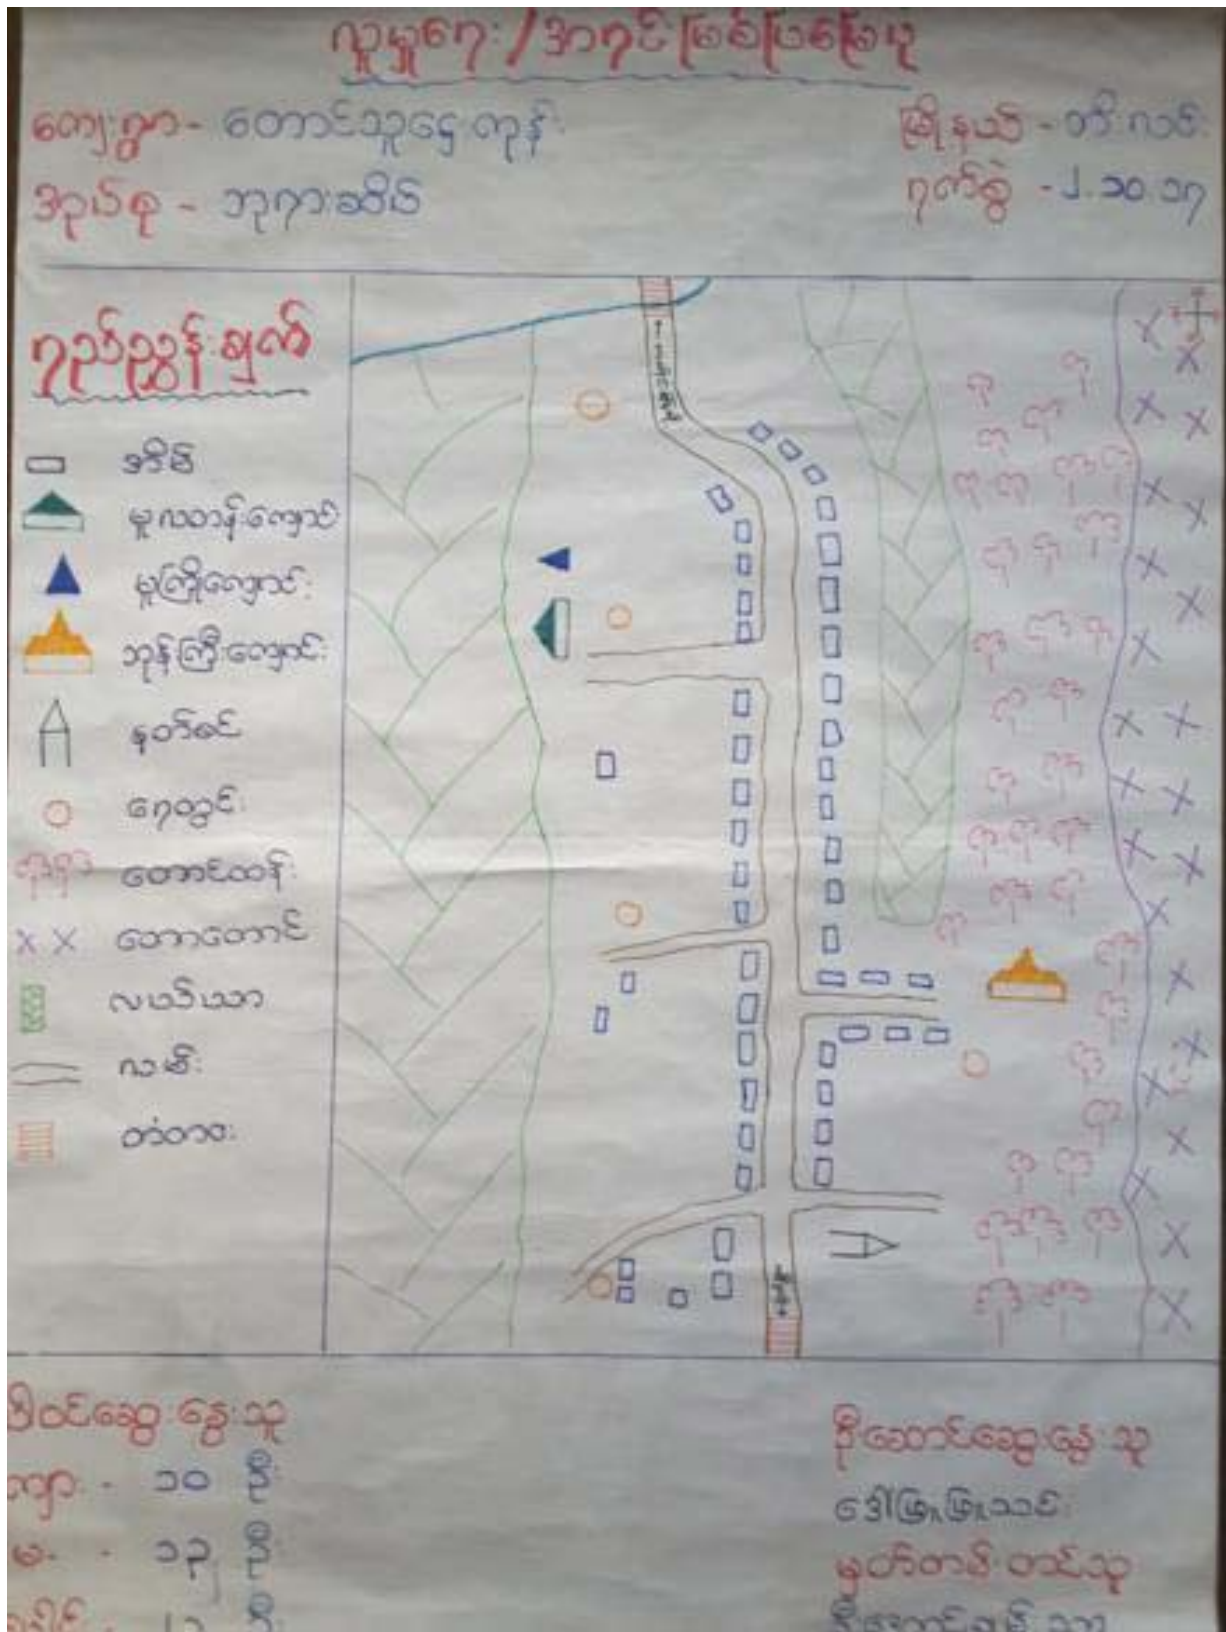 လူမှုရေး/အရင်းမြစ်ပြမြေပုံ
ကျေးရွာ - တောင်သူဌေးကုန်း
မြို့နယ် - ဘီးလင်း
အုပ်စု - ဘုရားဆိပ်
ရက်စွဲ - ၂.၁၀.၁၇
ရည်ညွှန်းချက်
အိမ်
မူလတန်းကျောင်း
မူကြိုကျောင်း
ဘုန်းကြီးကျောင်း
နတ်စင်
ရေတွင်း
တောင်တန်း
တောတောင်
လယ်ယာ
လမ်း
တံတား
ပါဝင်ဆွေးနွေးသူ
ကျား - ၁၀ ဦး
မ - ၁၃ ဦး
ဦးဆောင်ဆွေးနွေးသူ
ဒေါ်ဖြူဖြူသင်း
မှတ်တမ်းတင်သူ